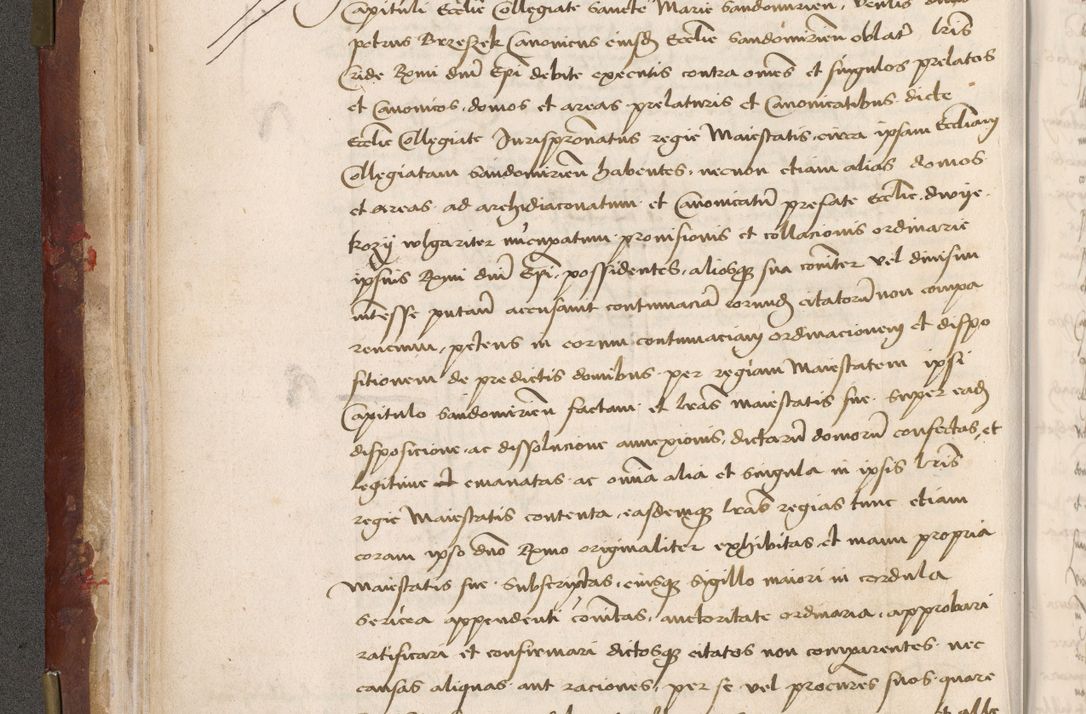 Capituli Ecclie Collegiate Sancte Marie Sandomirien, Venlis
petrus Brzeszek Canonicus eiusd Ecclie Sandomirien oblatis lris
Cride Rmi dni Epi debite executis contra omes et singulos prelatos
et Canonicos, domos et areas prelaturis et Canonicatibus dicte
Ecclie Collegiate Jurispronatus regie Maiestatis, circa ipsam Eccliam
Collegiatam Sandomirien habentes, necnon etiam alias domos
et areas ad archidiaconatum et Canonicatum prefate Ecclie, dwye
kozy wlgariter nuncupatum provisionis et collacionis ordinarie
ipsius Rmi dni Epi, possidentes, aliosque sua comiter vel divisim
interesse putan accusavit contumaciam eorumd citatorum non compa
rencium, petens in eorum contumaciam ordinacionem et dispo
sitionem de predictis domibus per regiam Maiestatem ipsi
Capitulo Sandomirien factam et lras maiestatis sue super ead
disposicione ac dissolucione annexionis, dictarum domorum confectas, et
legitime emanatas ac omia alia et singula in ipsis lris
regie Maiestatis contenta, easdemque lras regias tunc etiam
coram ipso dno Rmo originaliter exhibitas et manu propria
Maiestatis sue subscriptas, eiusque sigillo maiori in cordula
sericea appendenti comitas, auctoritate ordinaria, approbari
ratificari et confirmari dictosque citatos non comparentes nec
causas aliquas aut raciones, per se vel procures suos quare